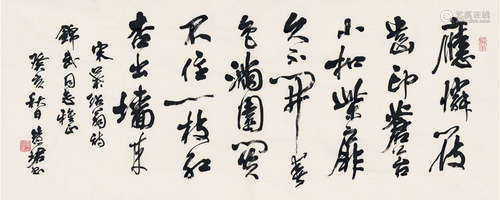 應憐屐
齒印蒼苔
小扣柴扉
久不開春
色滿園關
不住一枝紅
杏出墻來
宋葉紹翁詩
錦武同志雅正
癸亥秋日